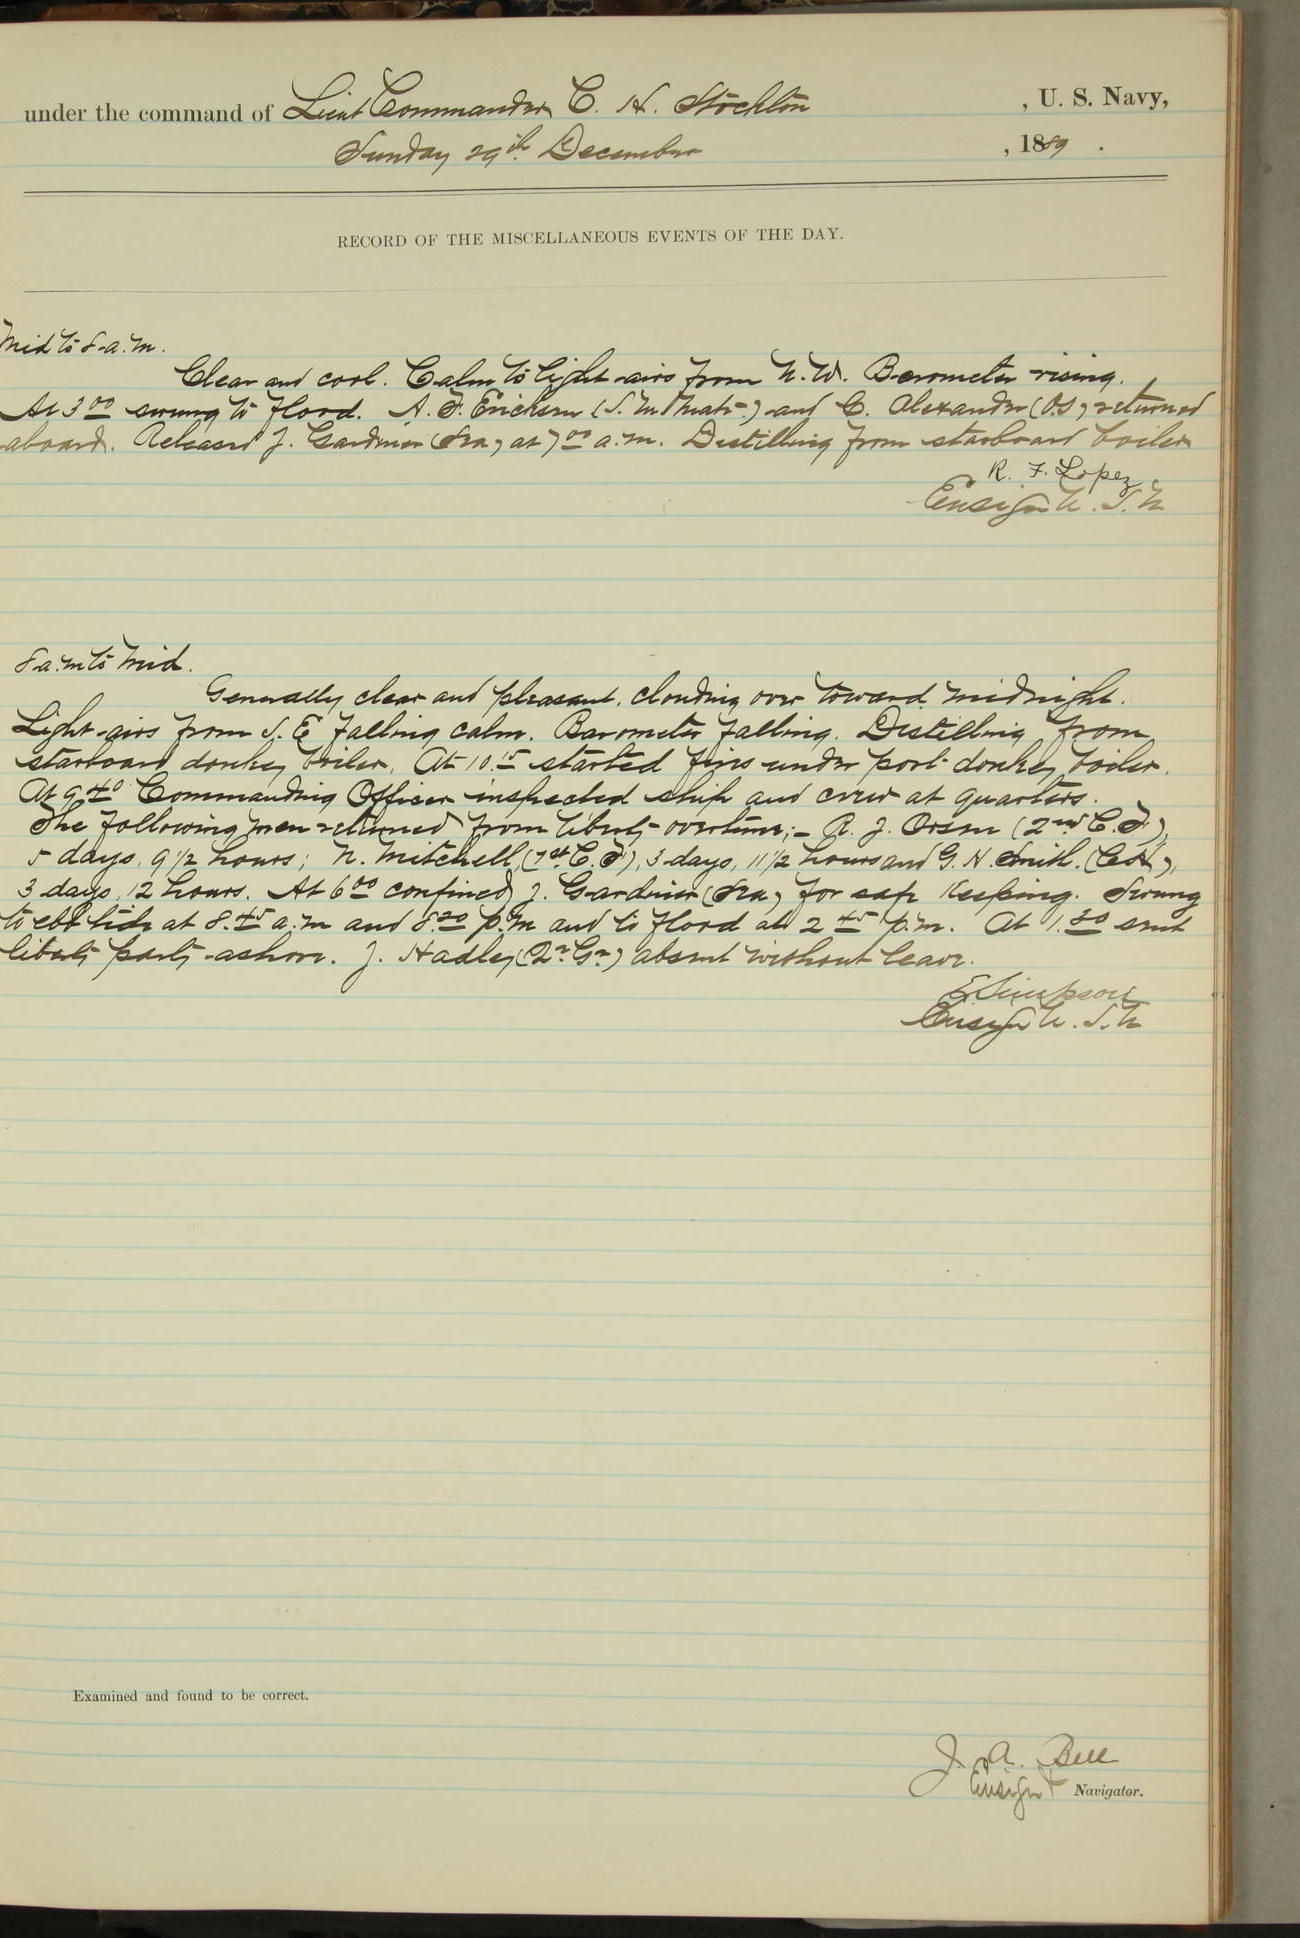 under the command of Lieut Commander C. H. Stockton , U. S. Navy,
Sunday 29th December , 1889 .
RECORD OF THE MISCELLANEOUS EVENTS OF THE DAY.
Mid to 8 a.m.
Clear and cool. Calm to light airs from N.W. Barometer rising.
At 3 00 swung to flood. A. F. Ericksen (S. M. Mate.) and C. Alexander (O.S) returned
aboard. Released J. Gardiner (Sea) at 7 00 a.m. Distilling from starboard boiler
R. F. Lopez
Ensign U.S.N
8 a.m to Mid.
Generally clear and pleasant, clouding over toward midnight.
Light airs from S. E falling calm. Barometer falling. Distilling from
starboard donkey boiler. At 10.15 started fires under port donkey boiler.
At 9 40 Commanding Officer inspected ship and crew at quarters.
The following men returned from liberty overtime; - R. J. Orsen (2nd C.F),
5 days, 9 1/2 hours; N. Mitchell, (1st C. F), 3 days, 11 1/2 hours and G. H. Smith.
3 days, 12 hours. At 6 00 confined J. Gardiner (Sea) for safe keeping. Swung
to ebb tide at 8.45 a.m and 8.20 p.m and to flood at 2 45 p.m. At 1.30 sent
liberty party ashore. J. Hadley absent without leave.
E Simpson
Ensign U.S.N
Examined and found to be correct.
J. A. Bell
Ensign & Navigator.